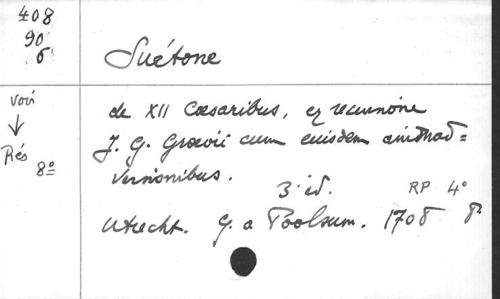 408
90
6
Suétone
voir
↓
Rés 8º
de XII Cæsaribus, ex recensione
J. G. Grævii cum eiusdem animad=
versionibus.
3ª éd. RP 4º
Utrecht. G. a Poolsum. 1708 8º